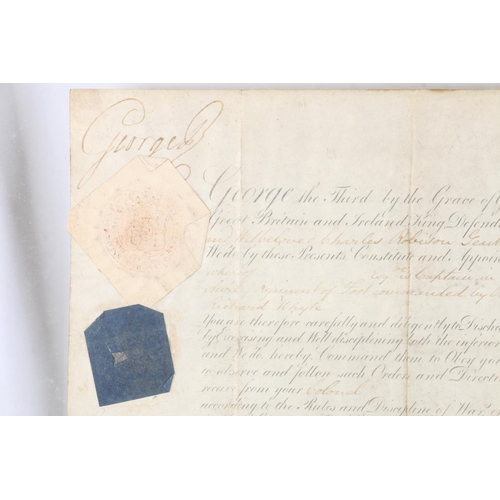 George R
George the Third by the Grace of
Great Britain and Ireland King, Defend
and Welbeloved Charles Robison Gent
We do by these Presents Constitute and Appoin
Esqr. Captain in
Regiment of Foot commanded by
You are therefore carefully and diligently to Disch
by Exercising and Well disciplining both the inferior
and We do hereby Command them to Obey yo
to observe and follow such Orders and Direct
receive from your Colonel
according to the Rules and Discipline of War, in